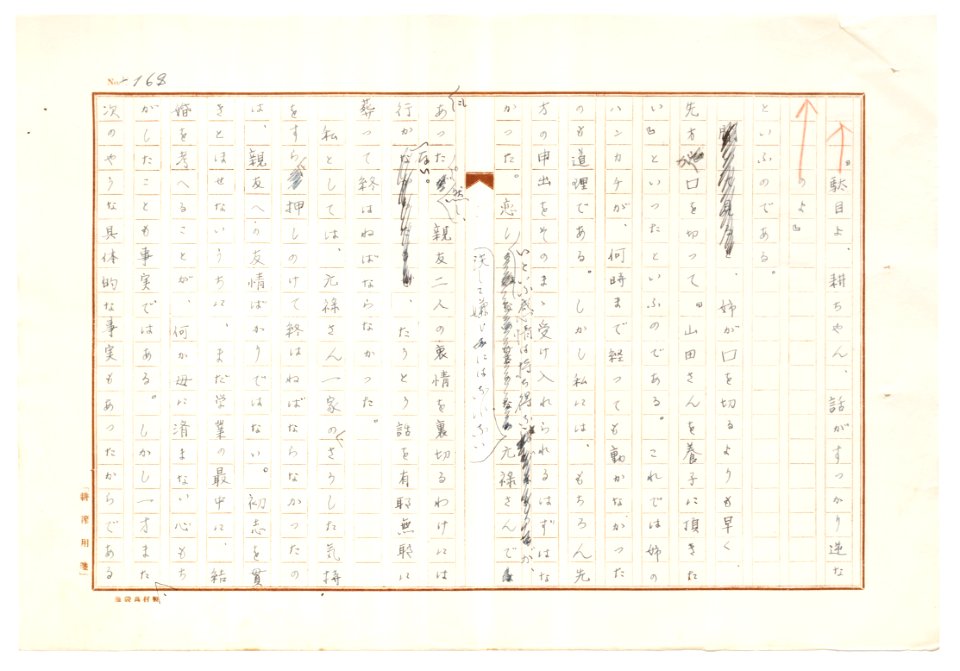 No. 168
『駄目よ、耕ちやん、話がすつかり逆な
のよ』
といふのである
、姉が口を切るよりも早く
先方が口を切つて『山田さんを養子に頂きた
い』といつたといふのである。これでは姉の
ハンカケが、何時まで経つても動かなかつた
のも道理である。しかし私には、もちろん先
方の申出をそのまゝ受け入れられるはずはな
かつた。恋し
いといふ感情は持ち得
が、
元禄さんで
決して嫌ひ
には
あつた
然し、
親友二人の裏情を裏切るわけには
行か
ない。
、たうとう話を有耶無耶に
葬つて終はねばならなかつた。
私としては、元禄さん一家のさうした気持
をすら押しのけて終はねばならなかつたの
は、親友への友情ばかりではない。初志を貫
きとほせないうちに、まだ学業の最中に、結
婚を考へることが、何か母に済まない心もち
がしたことも事実ではある。しかし一方また
次のやうな具体的な事実もあつたからである